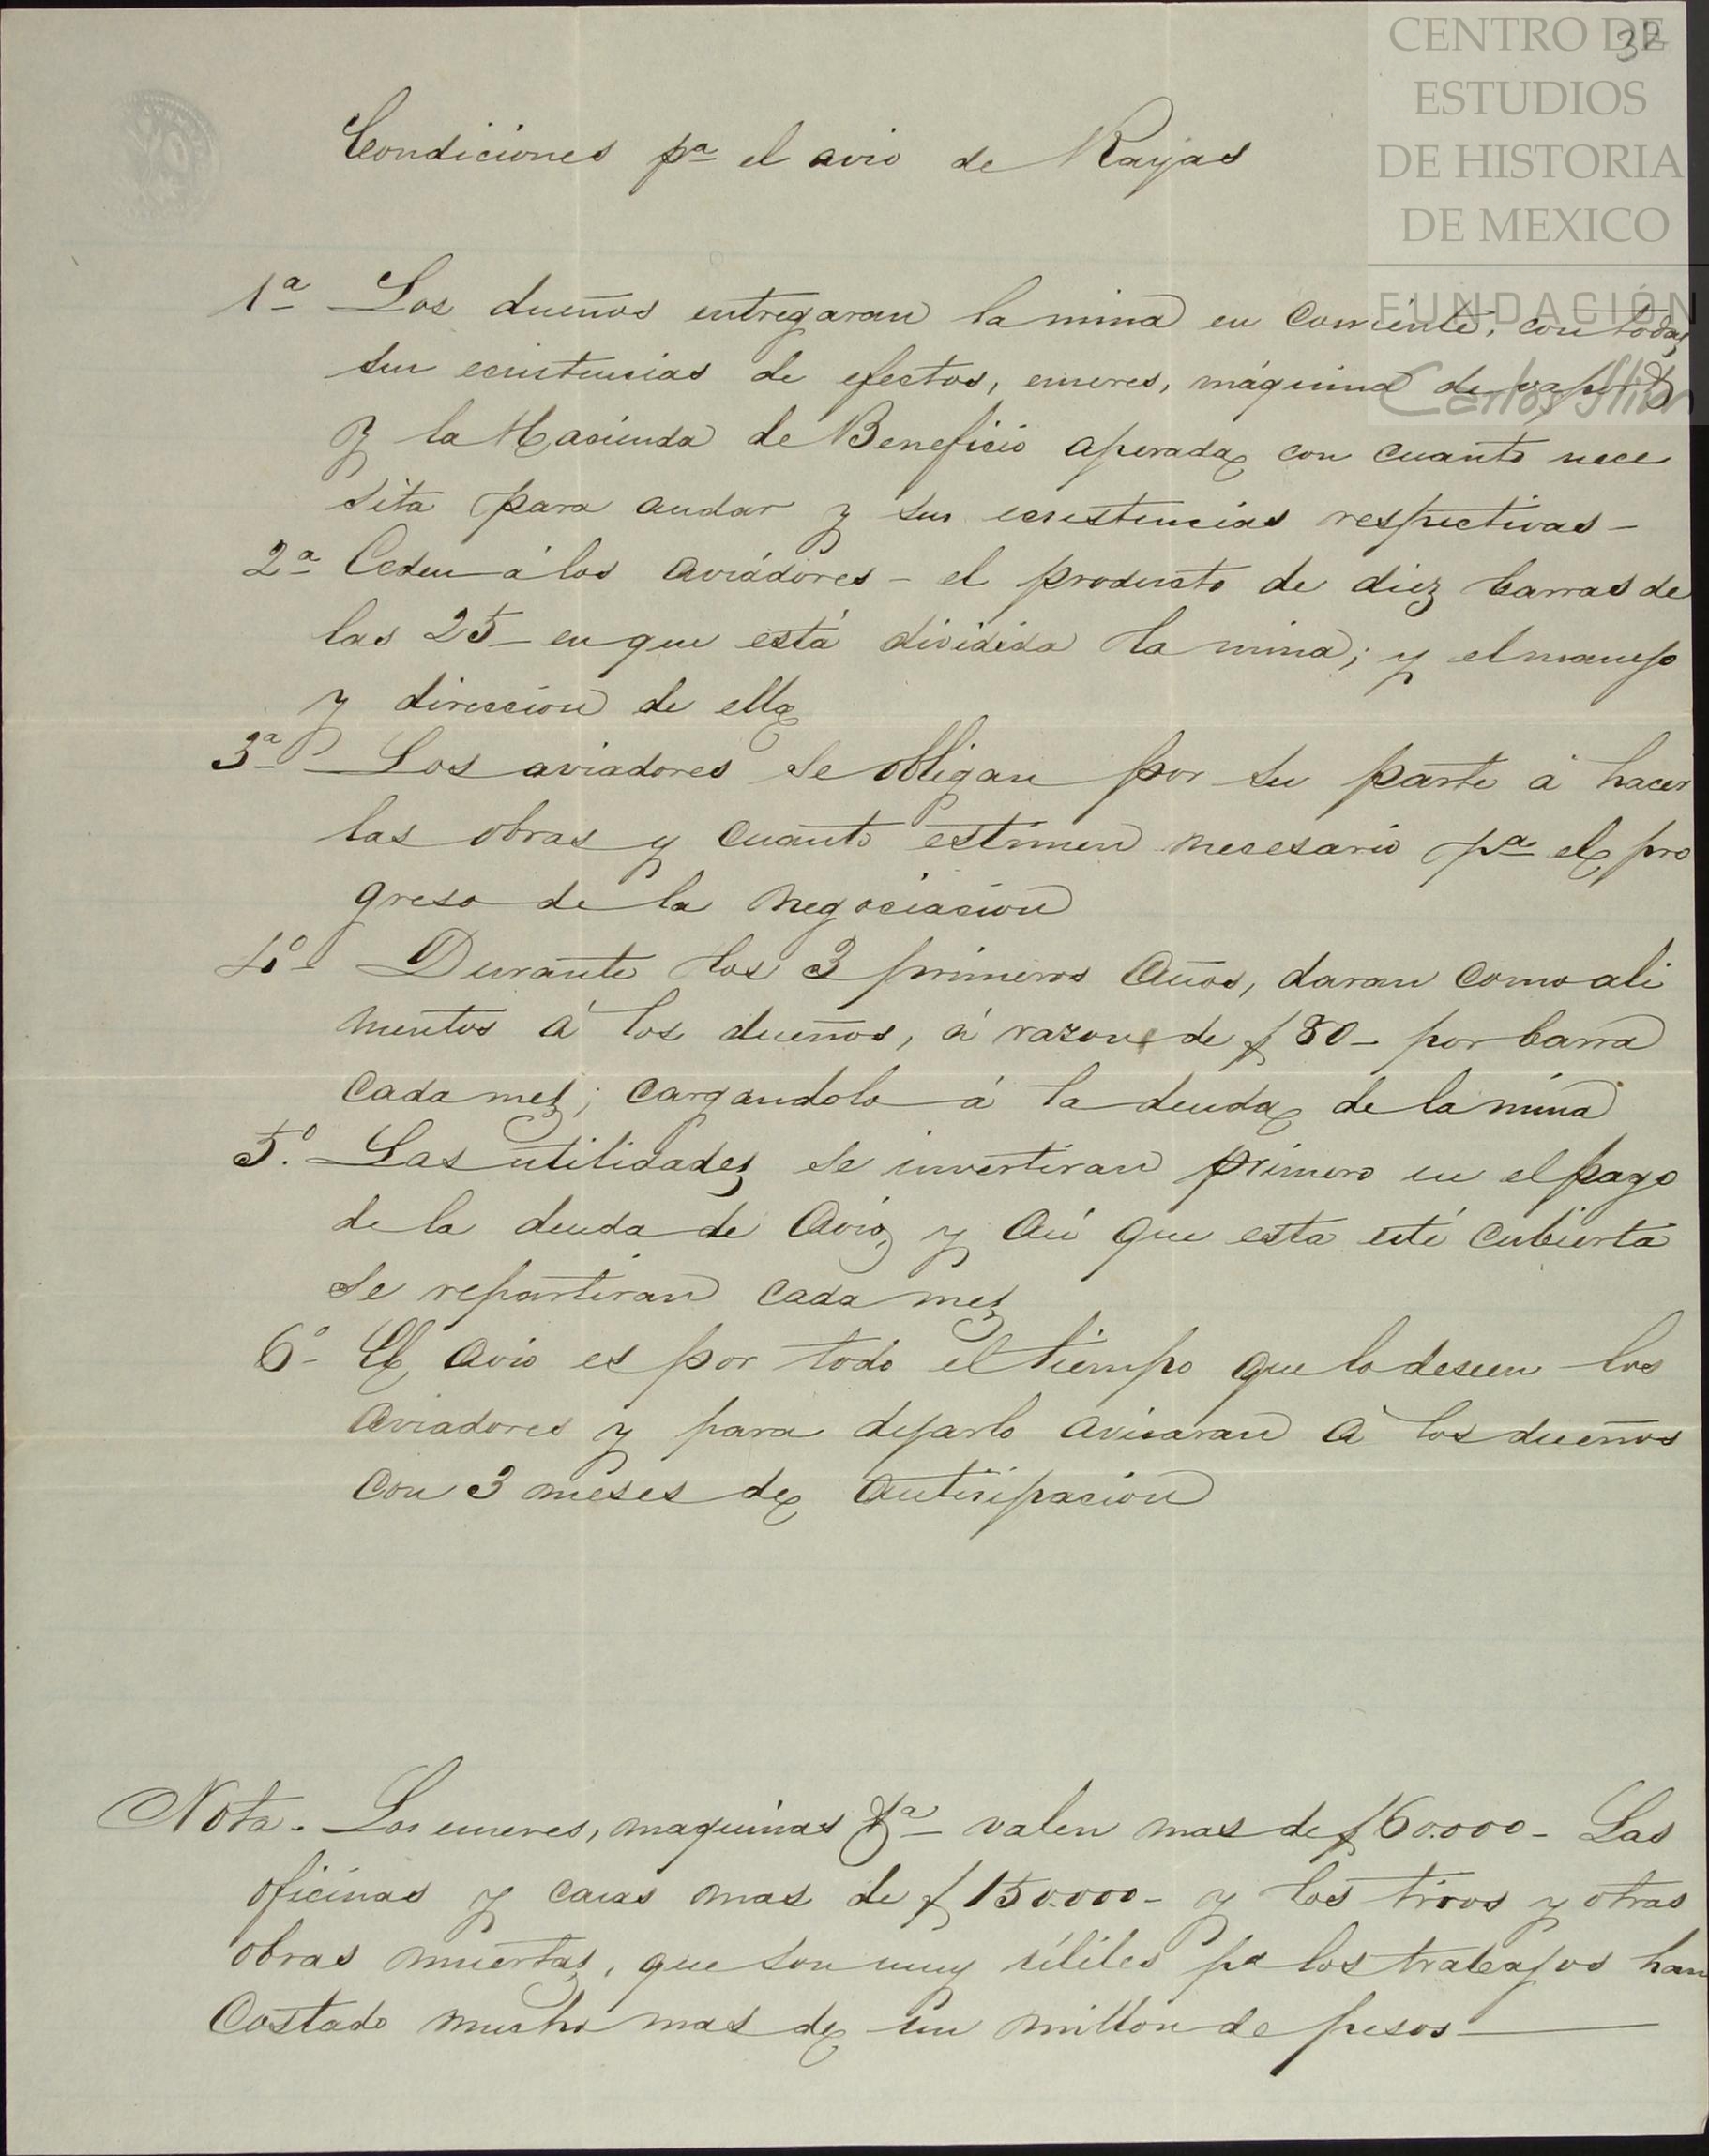 CENTRO DE
ESTUDIOS
DE HISTORIA
DE MEXICO
FUNDACIÓN
Carlos Slim
32
Condiciones pª el avio de Rayas
1ª Los dueños entregaran la mina en corriente, con todas
sus ecsistencias de efectos, enseres, máquina de vapor &
y la Hacienda de Beneficio aperada con cuanto nece
sita para andar y sus ecsistencias respectivas -
2ª Ceden á los aviadores - el producto de diez barras de
las 25 - en que está dividida la mina; y el manejo
y direccion de ella
3ª - Los aviadores se obligan por su parte á hacer
las obras y cuanto estimen necesario pª el pro
greso de la negociacion
4º Durante los 3 primeros años, daran como ali
mentos á los dueños, á razon de $ 80 - por barra
cada mes; cargandolo á la deuda de la mina
5º. Las utilidades se invertiran primero en el pago
de la deuda de avio, y asi que esta esté cubierta
se repartiran cada mes
6º - El avio es por todo el tiempo que lo deseen los
aviadores y para dejarlo avisaran á los dueños
con 3 meses de anticipacion
Nota. Los enseres, maquinas &ª - valen mas de $ 60.000 - Las
oficinas y casas mas de $ 150.000 - y los tiros y otras
obras muertas, que son muy útiles pª los trabajos han
costado mucho mas de un millon de pesos -